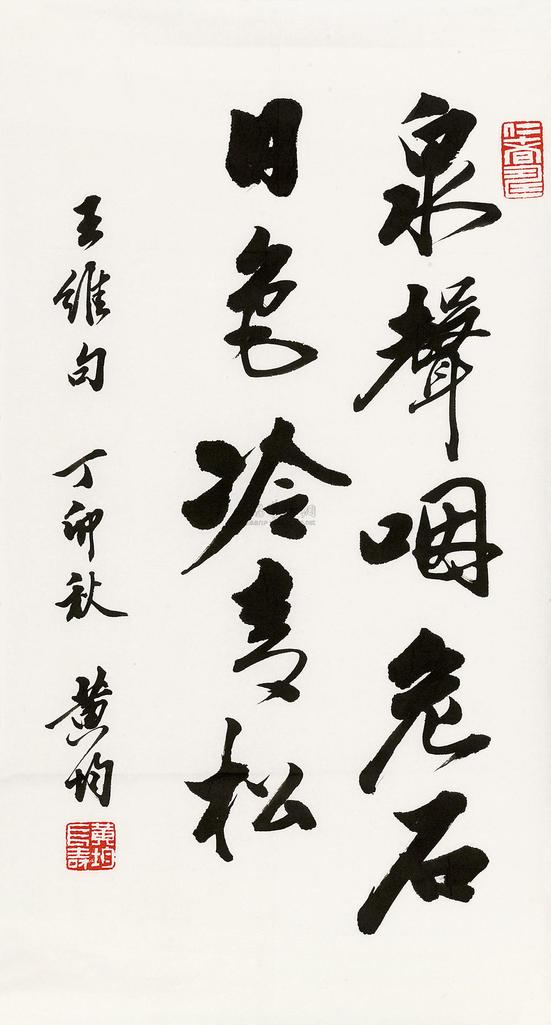 泉聲咽危石
日色冷青松
王維句 丁卯秋 黄均
黄均長壽